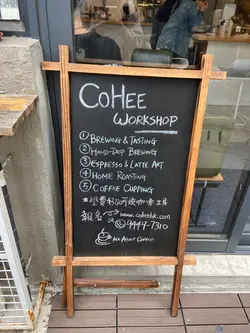 COHEE
WORKSHOP
① BREWING & TASTING
② HAND-DRIP BREWING
③ ESPRESSO & LATTE ART
④ HOME ROASTING
⑤ COFFEE CUPPING
報名
www.coheehk.com
9449-7310
ALL ABOUT COFFEE